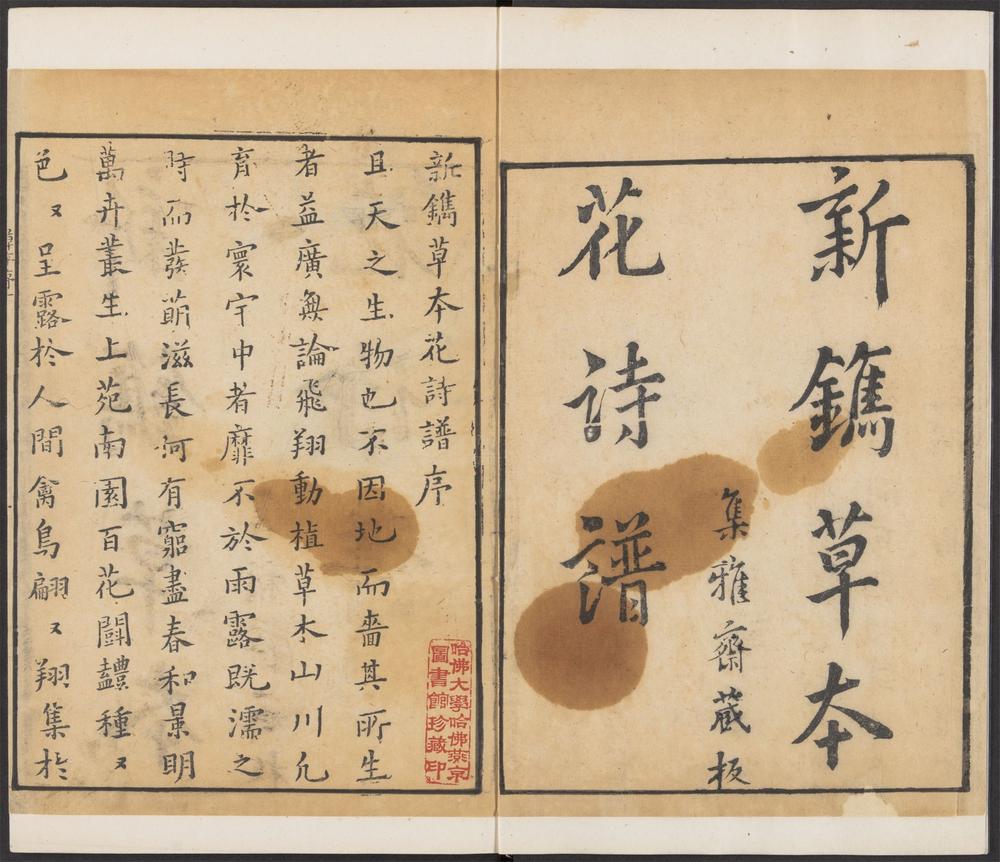 新鐫草本
花詩譜
集雅齋藏板
新鐫草本花詩譜序
且天之生物也不因地而嗇其所生
者益廣無論飛翔動植草木山川凡
育於寰宇中者靡不於雨露既濡之
時而發萠滋長何有窮盡春和景明
萬卉叢生上苑南園百花鬪，種々
色々呈露於人間禽鳥翩々翔集於
哈佛大學哈佛燕京
圖書館珍藏印